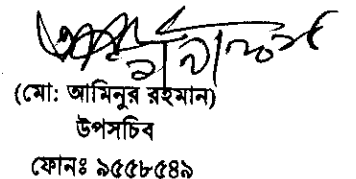 (মো: আমিনুর রহমান)
উপসচিব
ফোনঃ ৯৫৫৮৫৪৯